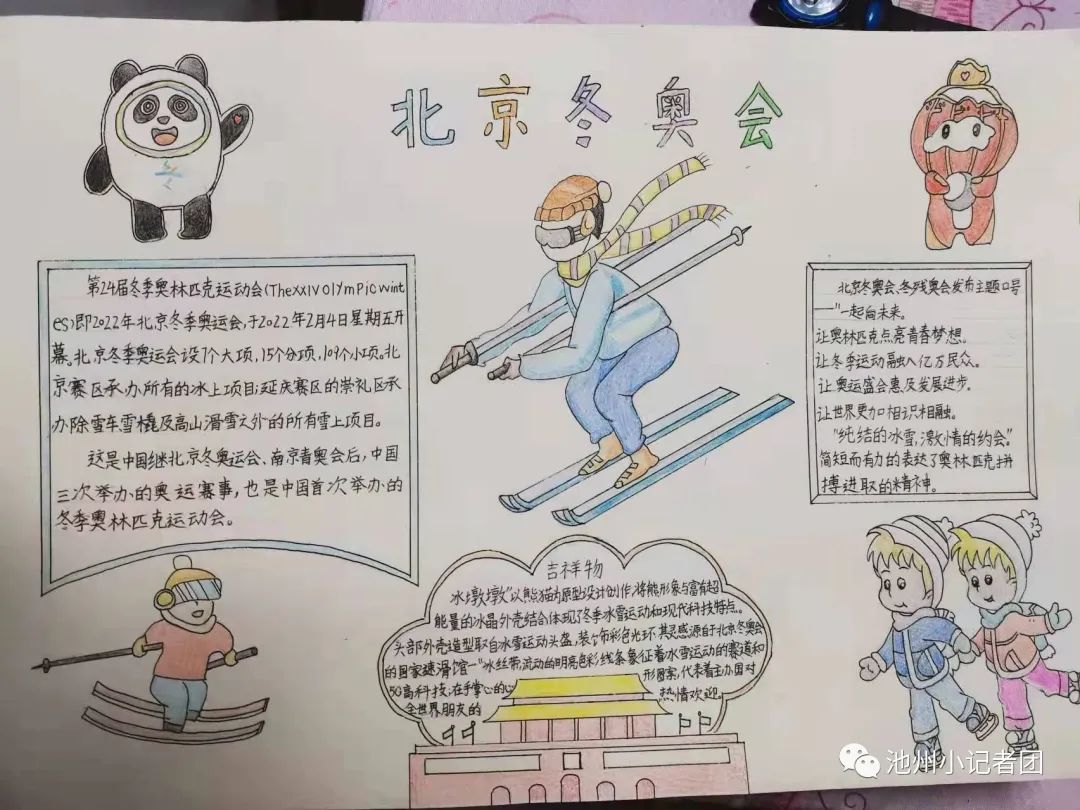 北京冬奥会
第24届冬季奥林匹克运动会(TheXXIVOlYmPicwint
es)即2022年北京冬季奥运会,于2022年2月4日星期五开
幕。北京冬季奥运会设7个大项,15个分项,109个小项。北
京赛区承办所有的冰上项目;延庆赛区的崇礼区承
办除雪车雪橇及高山滑雪之外的所有雪上项目。
这是中国继北京冬奥运会、南京青奥会后,中国
三次举办的奥运赛事,也是中国首次举办的
冬季奥林匹克运动会。
北京冬奥会、冬残奥会发布主题口号
——"一起向未来。
让奥林匹克点亮青春梦想。
让冬季运动融入亿万民众。
让奥运盛会惠及发展进步。
让世界更加相识相融。
"纯结的冰雪,激情的约会。"
简短而有力的表达了奥林匹克拼
搏进取的精神。
吉祥物
冰墩墩"以熊猫为原型设计创作,将能形象与富有超
能量的冰晶外壳结合体现了冬季冰雪运动和现代科技特点。
头部外壳造型取自冰雪运动头盔,装饰彩色光环,其灵感源自于北京冬奥会
的国家速滑馆一"冰丝带,流动的明亮色彩线条象征着冰雪运动的赛道和
5G高科技;在手掌心的心形图案,代表着主办国对
全世界朋友的热情欢迎。
池州小记者团